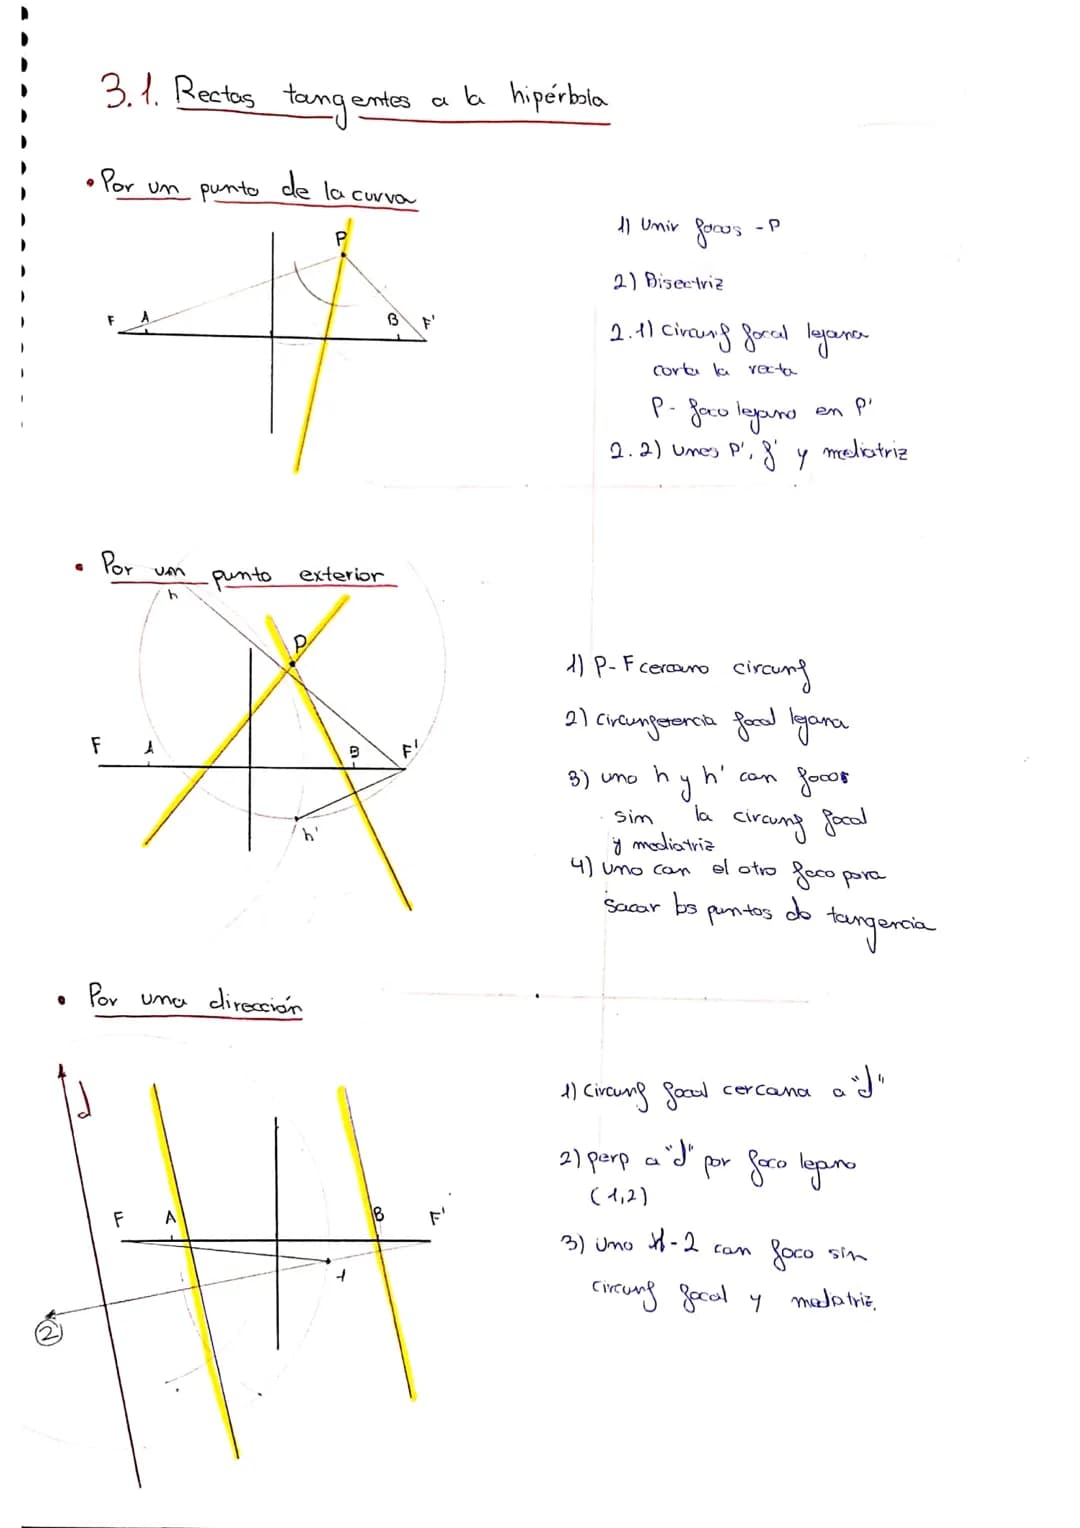 3.1. Rectas tangentes a la hipérbola
• Por un punto de la curva
P
F A B F'
1) Unir focos - P
2) Bisectriz
2.1) Circunf focal lejana
corta la recta
P - foco lejano en P'
2.2) Unes P', f' y mediatriz
• Por un punto exterior
h
P
F A B F'
h'
1) P - F cercano circunf
2) Circunferencia focal lejana
3) uno h y h' con focos
sin la circunf focal
y mediatriz
4) uno con el otro foco para
sacar los puntos de tangencia
• Por una dirección
d
F A B F'
1
2
1) Circunf focal cercana a "d"
2) perp a "d" por foco lejano
(1,2)
3) Uno 1-2 con foco sin
circunf focal y mediatriz.